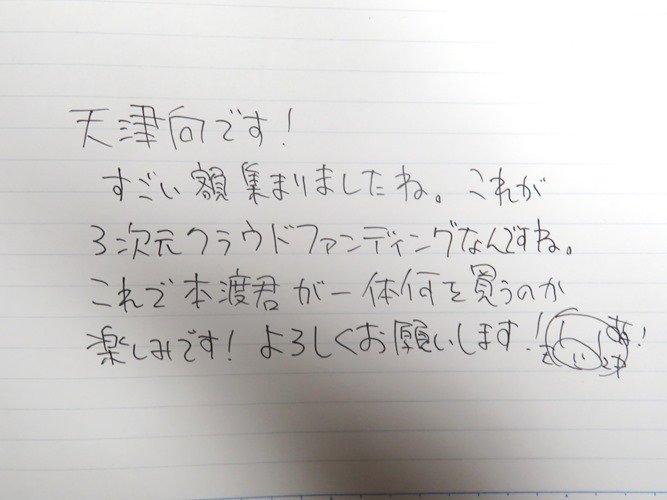 天津向です!
すごい額集まりましたね。これが
3次元クラウドファンディングなんですね。
これで本渡君が一体何を買うのか
楽しみです! よろしくお願いします!